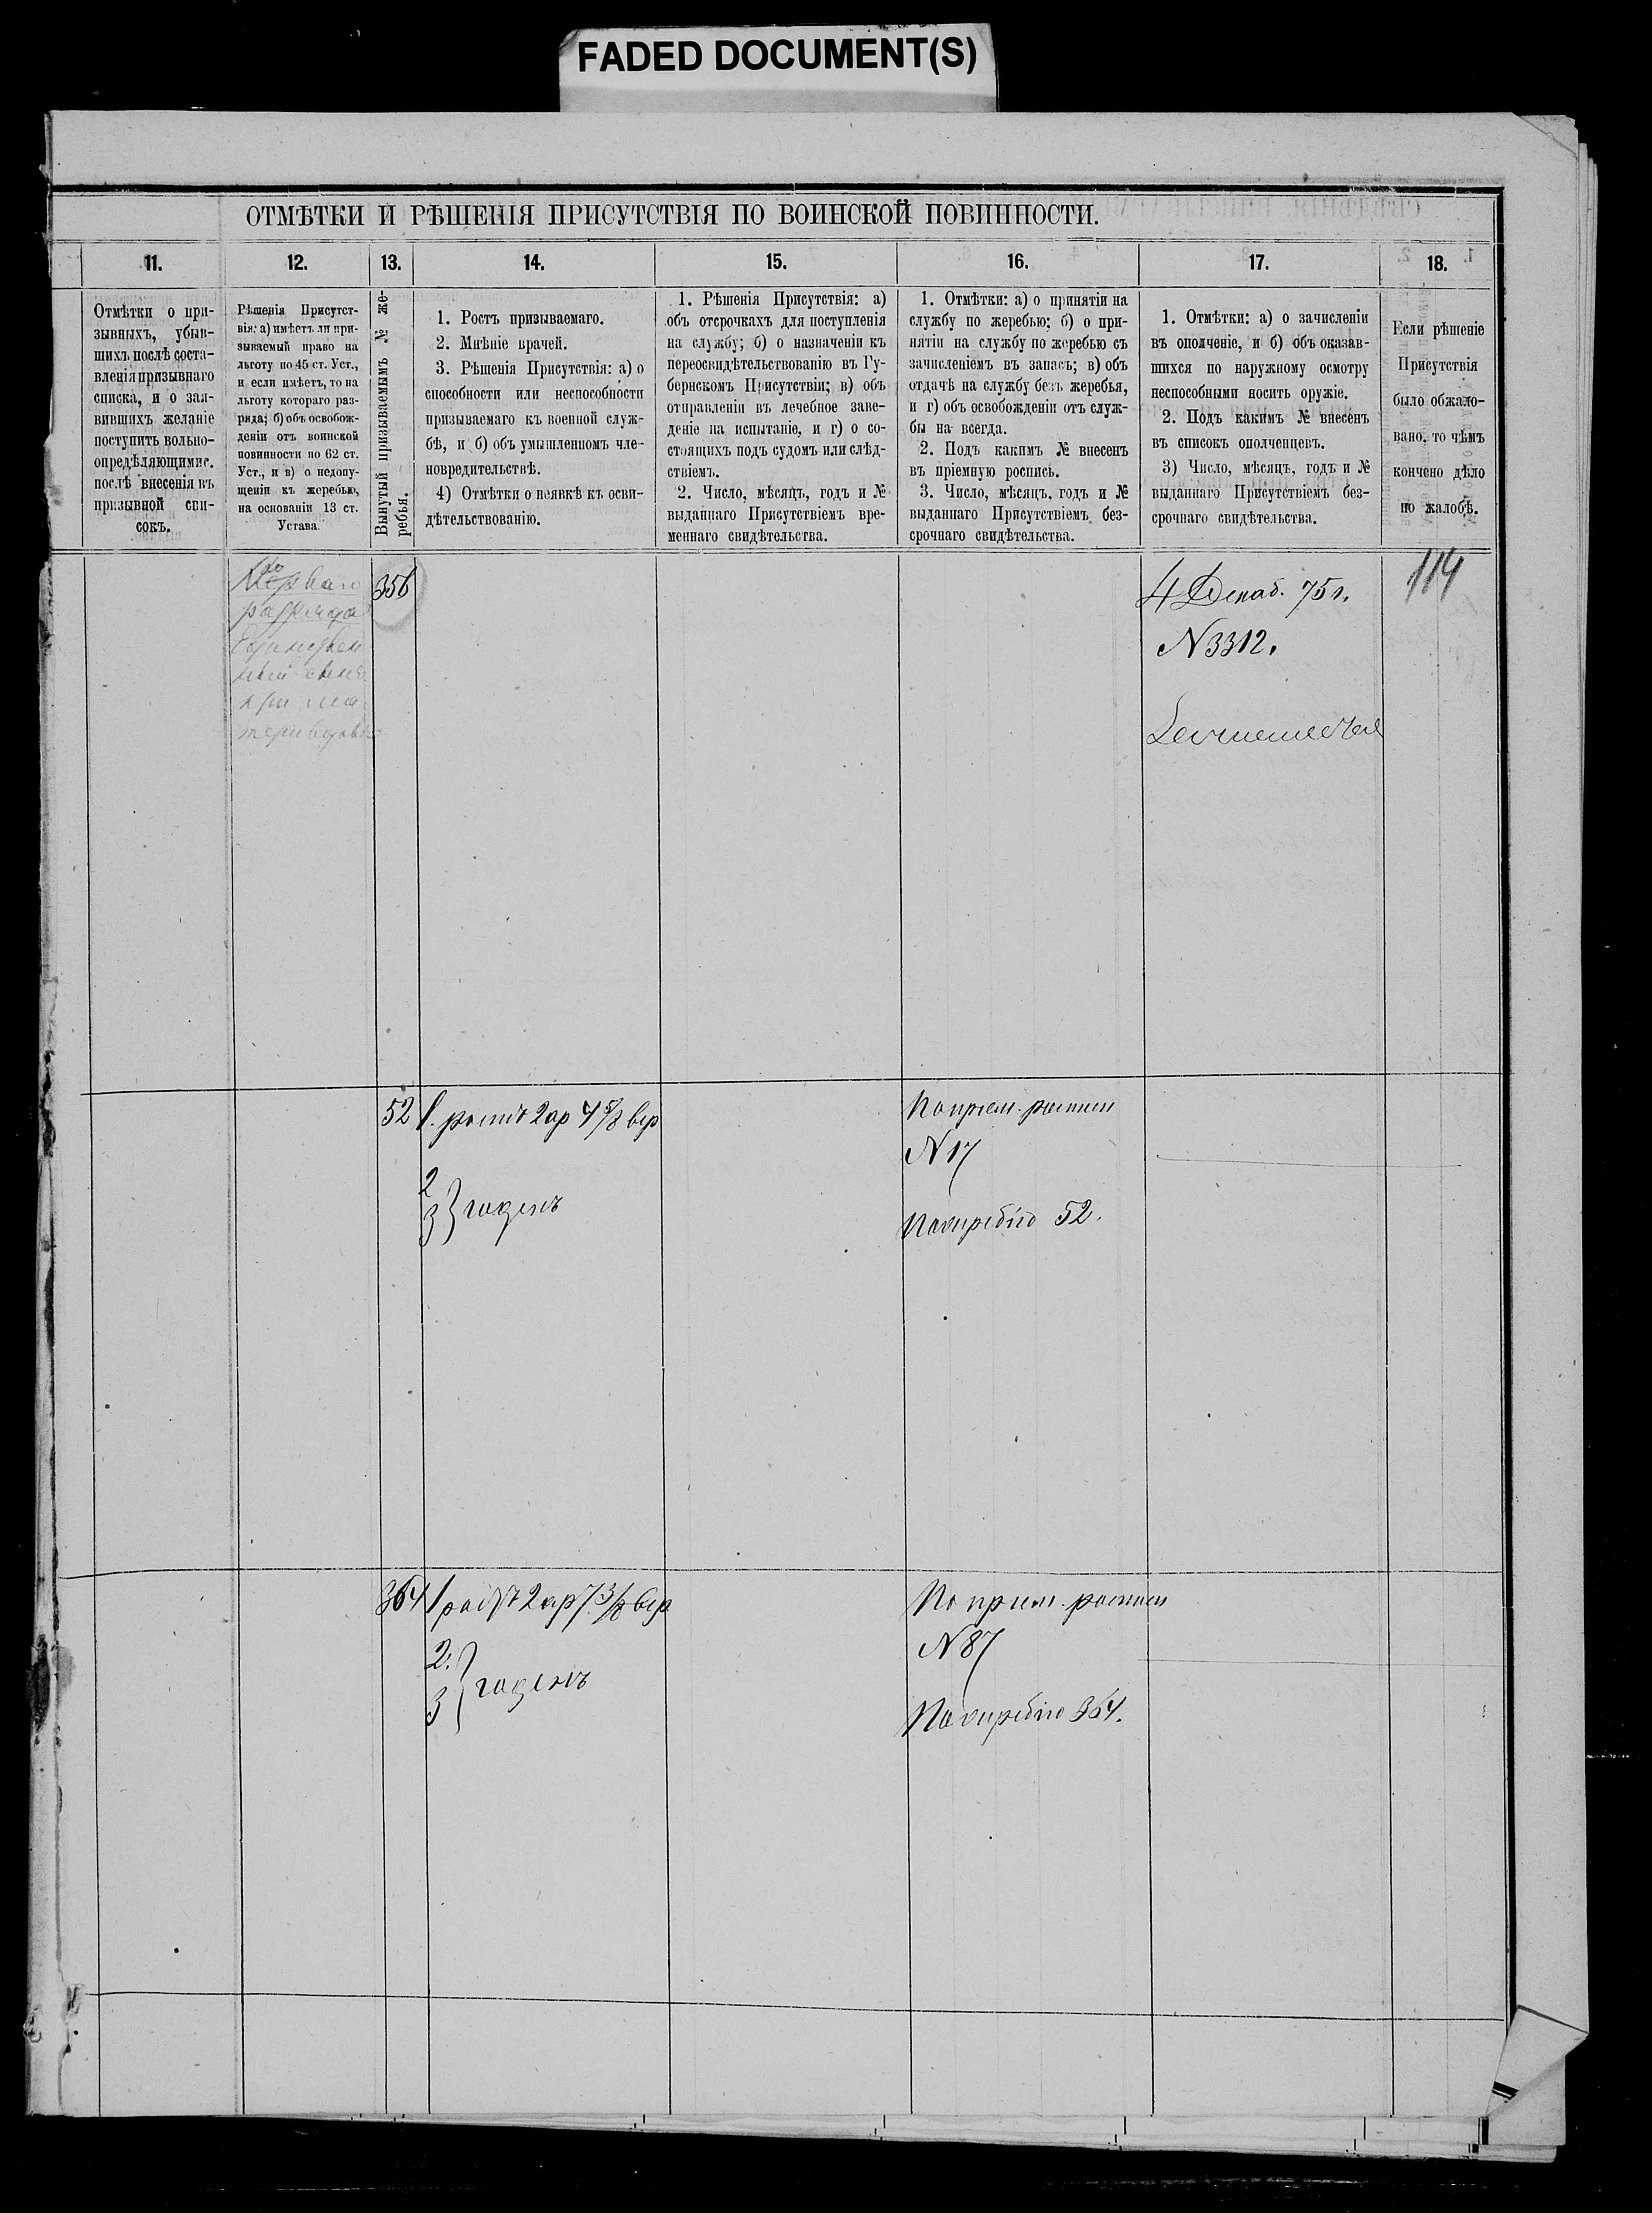 FADED DOCUMENT(S)
ОТМѢТКИ И РѢШЕНІЯ ПРИСУТСТВІЯ ПО ВОИНСКОЙ ПОВИННОСТИ.
11.
12.
13.
14.
15.
16.
17.
18.
Отмѣтки о при-
зывныхъ, убыв-
шихъ послѣ соста-
вленія призывнаго
списка, и о зая-
вившихъ желаніе
поступить вольно-
опредѣляющимис.
послѣ внесенія въ
призывной спи-
сокъ.
Рѣшенія Присутст-
вія: а) имѣетъ ли при-
зываемый право на
льготу по 45 ст. Уст.,
и если имѣетъ, то на
льготу котораго раз-
ряда; б) объ освобож-
деніи отъ воинской
повинности по 62 ст.
Уст., и в) о недопу-
щеніи къ жеребью,
на основаніи 13 ст.
Устава.
Вынутый призываемымъ № же-
ребья.
1. Ростъ призываемаго.
2. Мнѣніе врачей.
3. Рѣшенія Присутствія: а) о
способности или неспособности
призываемаго къ военной служ-
бѣ, и б) объ умышленномъ чле-
новредительствѣ.
4) Отмѣтки о неявкѣ къ осви-
дѣтельствованію.
1. Рѣшенія Присутствія: а)
объ отсрочкахъ для поступленія
на службу; б) о назначеніи къ
переосвидѣтельствованію въ Гу-
бернскомъ Присутствіи; в) объ
отправленіи въ лечебное заве-
деніе на испытаніе, и г) о со-
стоящихъ подъ судомъ или слѣд-
ствіемъ.
2. Число, мѣсяцъ, годъ и №
выданнаго Присутствіемъ вре-
меннаго свидѣтельства.
1. Отмѣтки: а) о принятіи на
службу по жеребью; б) о при-
нятіи на службу по жеребью съ
зачисленіемъ въ запасъ; в) объ
отдачѣ на службу безъ жеребья,
и г) объ освобожденіи отъ служ-
бы на всегда.
2. Подъ какимъ № внесенъ
въ пріемную роспись.
3. Число, мѣсяцъ, годъ и №
выданнаго Присутствіемъ без-
срочнаго свидѣтельства.
1. Отмѣтки: а) о зачисленіи
въ ополченіе, и б) объ оказав-
шихся по наружному осмотру
неспособными носить оружіе.
2. Подъ какимъ № внесенъ
въ списокъ ополченцевъ.
3) Число, мѣсяцъ, годъ и №
выданнаго Присутствіемъ без-
срочнаго свидѣтельства.
Если рѣшеніе
Присутствія
было обжало-
вано, то чѣмъ
кончено дѣло
по жалобѣ.
Перваго
разряда
Единствен
ный сынъ
при ма
тери вдовѣ
356
4 Декаб. 75 г.
N 3312.
114
52
1. ростъ 2 ар 4 5/8 вер
2
3 } годенъ
По прием. росписи
N 17
По жеребью 52.
364
1 ростъ 2 ар 7 3/8 вер
2.
3 } годенъ
По прием. росписи
N 87
По жеребью 364.